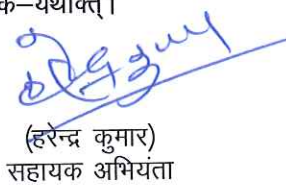 क–यथोक्त।
(हरेन्द्र कुमार)
सहायक अभियंता